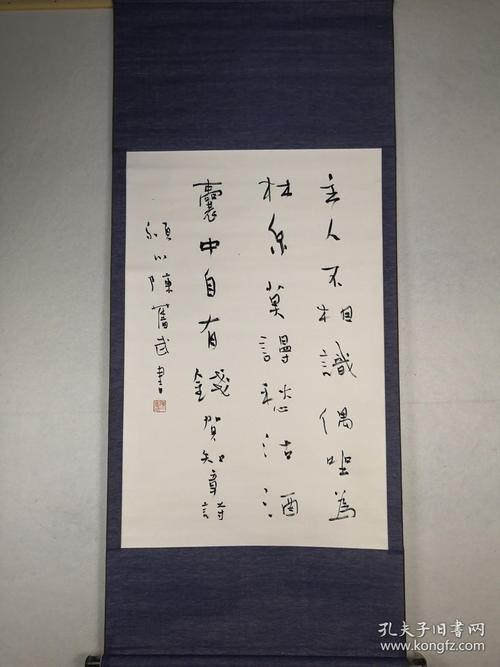 主人不相識偶坐為
林泉莫謾愁沽酒
囊中自有錢賀知章詩
潁川陳武書
孔夫子旧书网
www.kongfz.com